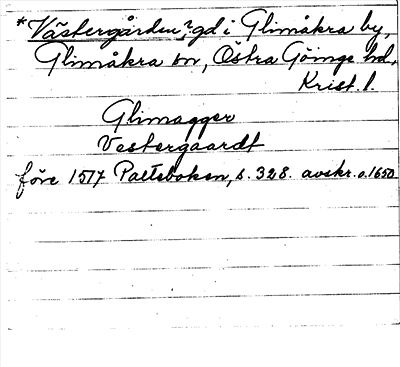 *Västergården,? gd i Glimåkra by,
Glimåkra sn, Östra Göinge hd,
Krist. l.
Glimagger
Vestergaardt
före 1517 Palteboken, s. 328. avskr. o. 1650